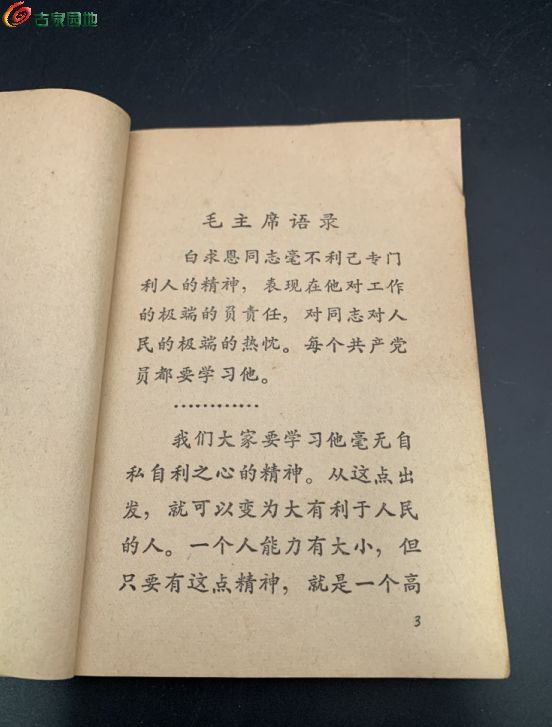 古泉园地
毛主席语录
白求恩同志毫不利己专门
利人的精神，表现在他对工作
的极端的负责任，对同志对人
民的极端的热忱。每个共产党
员都要学习他。
…………
我们大家要学习他毫无自
私自利之心的精神。从这点出
发，就可以变为大有利于人民
的人。一个人能力有大小，但
只要有这点精神，就是一个高
3